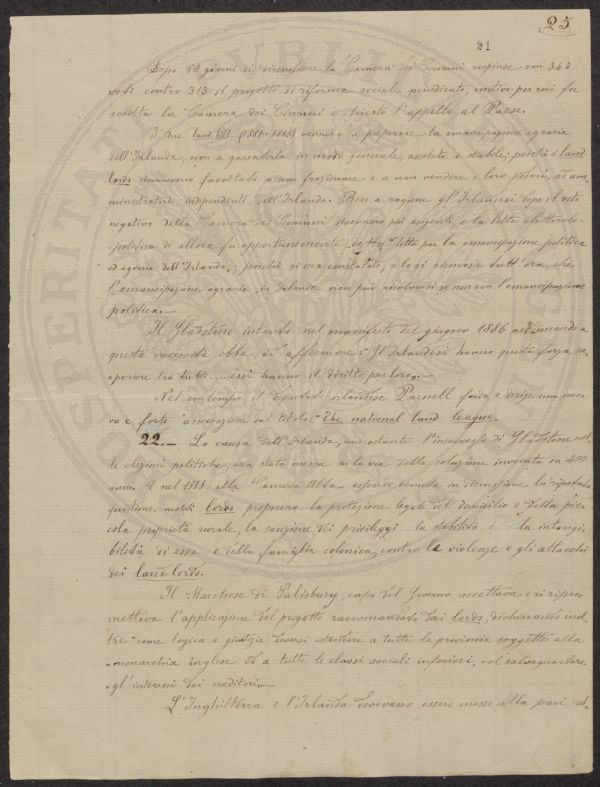 25
21
Dopo 50 giorni di discussione la Camera dei Comuni respinse con 343
voti contro 313 il progetto di riforma sociale maindicato, motivo per cui fu
sciolta la Camera dei Comuni e chiesto l'appello al Paese.
I due land bill (1881 e 1885) vennero a preparare la emancipazione agraria
dell'Irlanda, non a garentirla in modo generale, assoluto e stabile; poichè i land
lords rimanevano facoltati a non frazionare e a non vendere i loro poderi, ad am-
ministratori indipendenti dell'Irlanda. Ben a ragione gl'Irlandesi dopo il voto
negativo della Camera dei Comuni divennero più esigenti, e la lotta elettorale
politica d'allora fu opportunemente detta "lotta per la emancipazione politica
ed agraria dell'Irlanda"; poichè si era constatato, e lo si riconosce tutt'ora, che
l'emancipazione agraria in Irlanda non può risolversi se non con l'emancipazione
politica.—
Il Gladstone intanto nel manifesto del giugno 1886 accennando a
questa necessità ebbe ad affermare: Gl'Irlandesi hanno questa forza su-
periore tra tutti.... essi hanno il diritto per loro.—
Nel contempo il deputato irlandese Parnell fonda e dirige una nuo-
va e forte associazione sul titolo: "The national land league.
22.— La causa dell'Irlanda, non ostante l'insuccesso di Gladstone nel-
le elezioni politiche, era stata messa in la via della soluzione invocata da 400
anni. E nel 1888 alla Camera Alta essendo venuta in discussione la riportata
quistione, molti lords proposero la protezione legale del domicilio e della pic-
cola proprietà rurale, la sanzione dei privileggi la stabilità e la intangi-
bilità di essa e della famiglia colonica, contro le violenze e gli attacchi
dei land-lords.
Il Marchese di Salisbury, capo del Governo accettava e si ripro-
metteva l'applicazione del progetto raccomandato dai lords, dichiarando inol-
tre "come logica e giustizia doversi estendere a tutte le provincie soggette alla
"monarchia inglese ed a tutte le classi sociali inferiori, col salvaguardare
"gl'interessi dei creditori.—
L'Inghilterra e l'Irlanda dovevano essere messe alla pari nel-